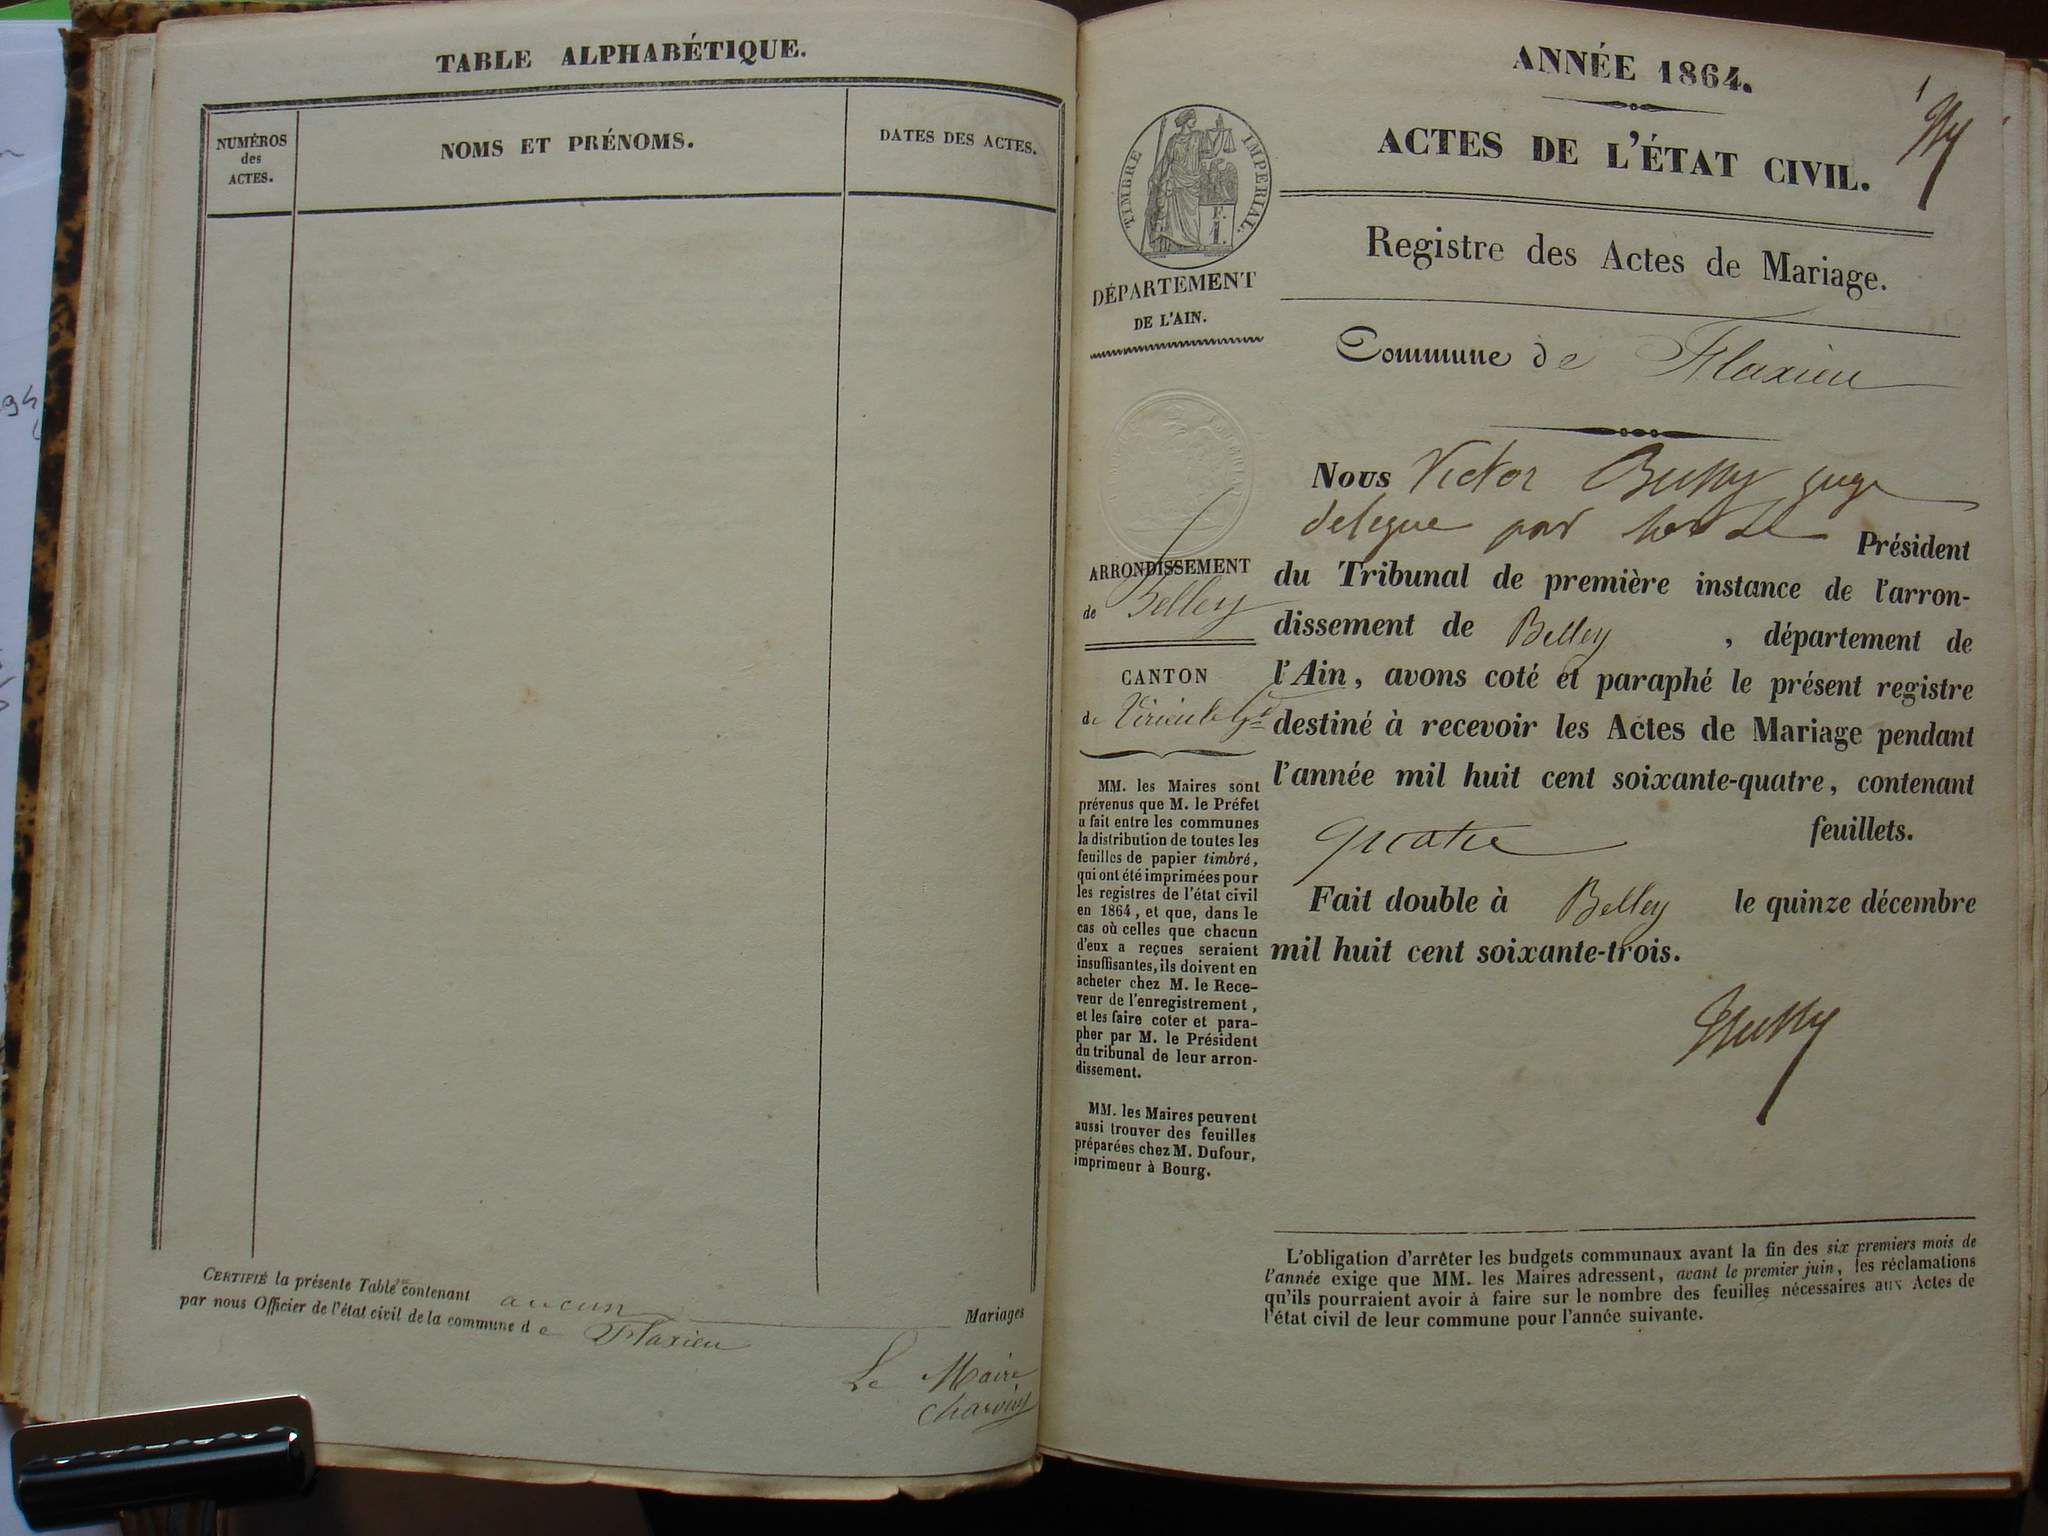 TABLE ALPHABÉTIQUE.
NUMÉROS
des
ACTES.
NOMS ET PRÉNOMS.
DATES DES ACTES.
CERTIFIÉ la présente Table contenant aucun Mariages
par nous Officier de l'état civil de la commune de Flaxieu
Le Maire
ANNÉE 1864.
1
ACTES DE L'ÉTAT CIVIL.
TIMBRE IMPERIAL.
Registre des Actes de Mariage.
DÉPARTEMENT
DE L'AIN.
Commune de Flaxieu
ARRONDISSEMENT
de Belley
CANTON
de Virieu le Gd
MM. les Maires sont
prévenus que M. le Préfet
a fait entre les communes
la distribution de toutes les
feuilles de papier timbré,
qui ont été imprimées pour
les registres de l'état civil
en 1864, et que, dans le
cas où celles que chacun
d'eux a reçues seraient
insuffisantes, ils doivent en
acheter chez M. le Rece-
veur de l'enregistrement,
et les faire coter et para-
pher par M. le Président
du tribunal de leur arron-
dissement.
MM. les Maires peuvent
aussi trouver des feuilles
préparées chez M. Dufour,
imprimeur à Bourg.
Nous Victor Bussy juge
delegue par Président
du Tribunal de première instance de l'arron-
dissement de Belley, département de
l'Ain, avons coté et paraphé le présent registre
destiné à recevoir les Actes de Mariage pendant
l'année mil huit cent soixante-quatre, contenant
quatre feuillets.
Fait double à Belley le quinze décembre
mil huit cent soixante-trois.
Bussy
L'obligation d'arrêter les budgets communaux avant la fin des six premiers mois de
l'année exige que MM. les Maires adressent, avant le premier juin, les réclamations
qu'ils pourraient avoir à faire sur le nombre des feuilles nécessaires aux Actes de
l'état civil de leur commune pour l'année suivante.